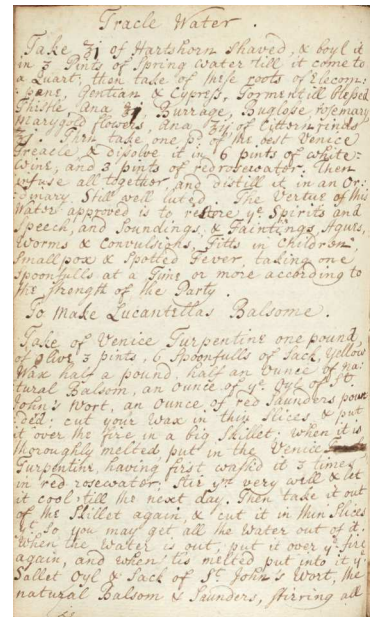 Tracle Water.
Take ℥j of Hartshorn shaved, & boyl it
in 3 Pints of Spring water till it come to
a Quart; then take of these roots of Elecom:
pane, Gentian & Cypress, Tormentill Blessed
Thistle ana ℥j, Burrage, Buglose, rosemary
Marygold flowers, ana ℥ij of Cittern rinds
Then take one pd of the best Venice
Treacle & dissolve it in 6 pints of white-
Wine, and 3 pints of redrosewater. Then
infuse all together, and distill it in an Or:
dinary Still well luted. The Vertue of this
Water approved is to restore ye Spirits and
Speech, and Soundings, & Faintings, Agues,
Worms & Convulsions, Fitts in Children
Smallpox & Spotted Fever, taking one
Spoonfulls at a Time or more according to
the strength of the Party.
To Make Lucantellas Balsome.
Take of Venice Turpentine one pound,
of olive 3 pints, 6 Spoonfulls of Sack, Yellow
Wax half a pound, half an Ounce of Na:
tural Balsom, an ounce of ye Oyl of St
John's Wort, an Ounce of red Saunders poun
ded; cut your Wax in thin Slices & put
it over the fire in a big Skillet; when it is
thoroughly melted put in the Venice
Turpentine, having first washd it 3 times
in red rosewater; Stir ym very well & let
it cool till the next day. Then take it out
of the Skillet again, & cut it in thin Slices
yt So you may get all the Water out of it:
When the Water is out, put it over ye fire
again, and when tis melted put into it ye
Sallet Oyl & Sack of St John's Wort, the
natural Balsom & Saunders, stirring all